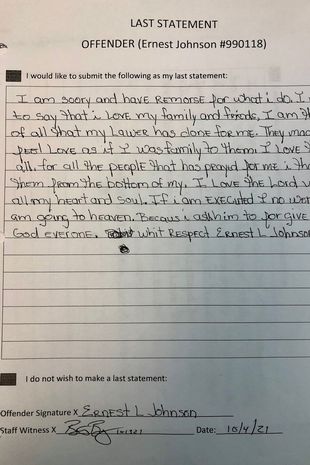 LAST STATEMENT
OFFENDER (Ernest Johnson #990118)
I would like to submit the following as my last statement:
I am soory and have REMORSE for what i do. I
to say that i Love my family and friends. I am
of all that my Lawer has done for me. They mad
feel Love as if I was family to them I Love
all. for all the people that has prayd for me i
them from the bottom of my. I Love the Lord
all my heart and soul. If i am EXECUTED I no
am going to heaven. Becaus i ask him to for give
God everone. whit Respect Ernest L Johnson
I do not wish to make a last statement:
Offender Signature X Ernest L Johnson
Staff Witness X Date: 10/4/21